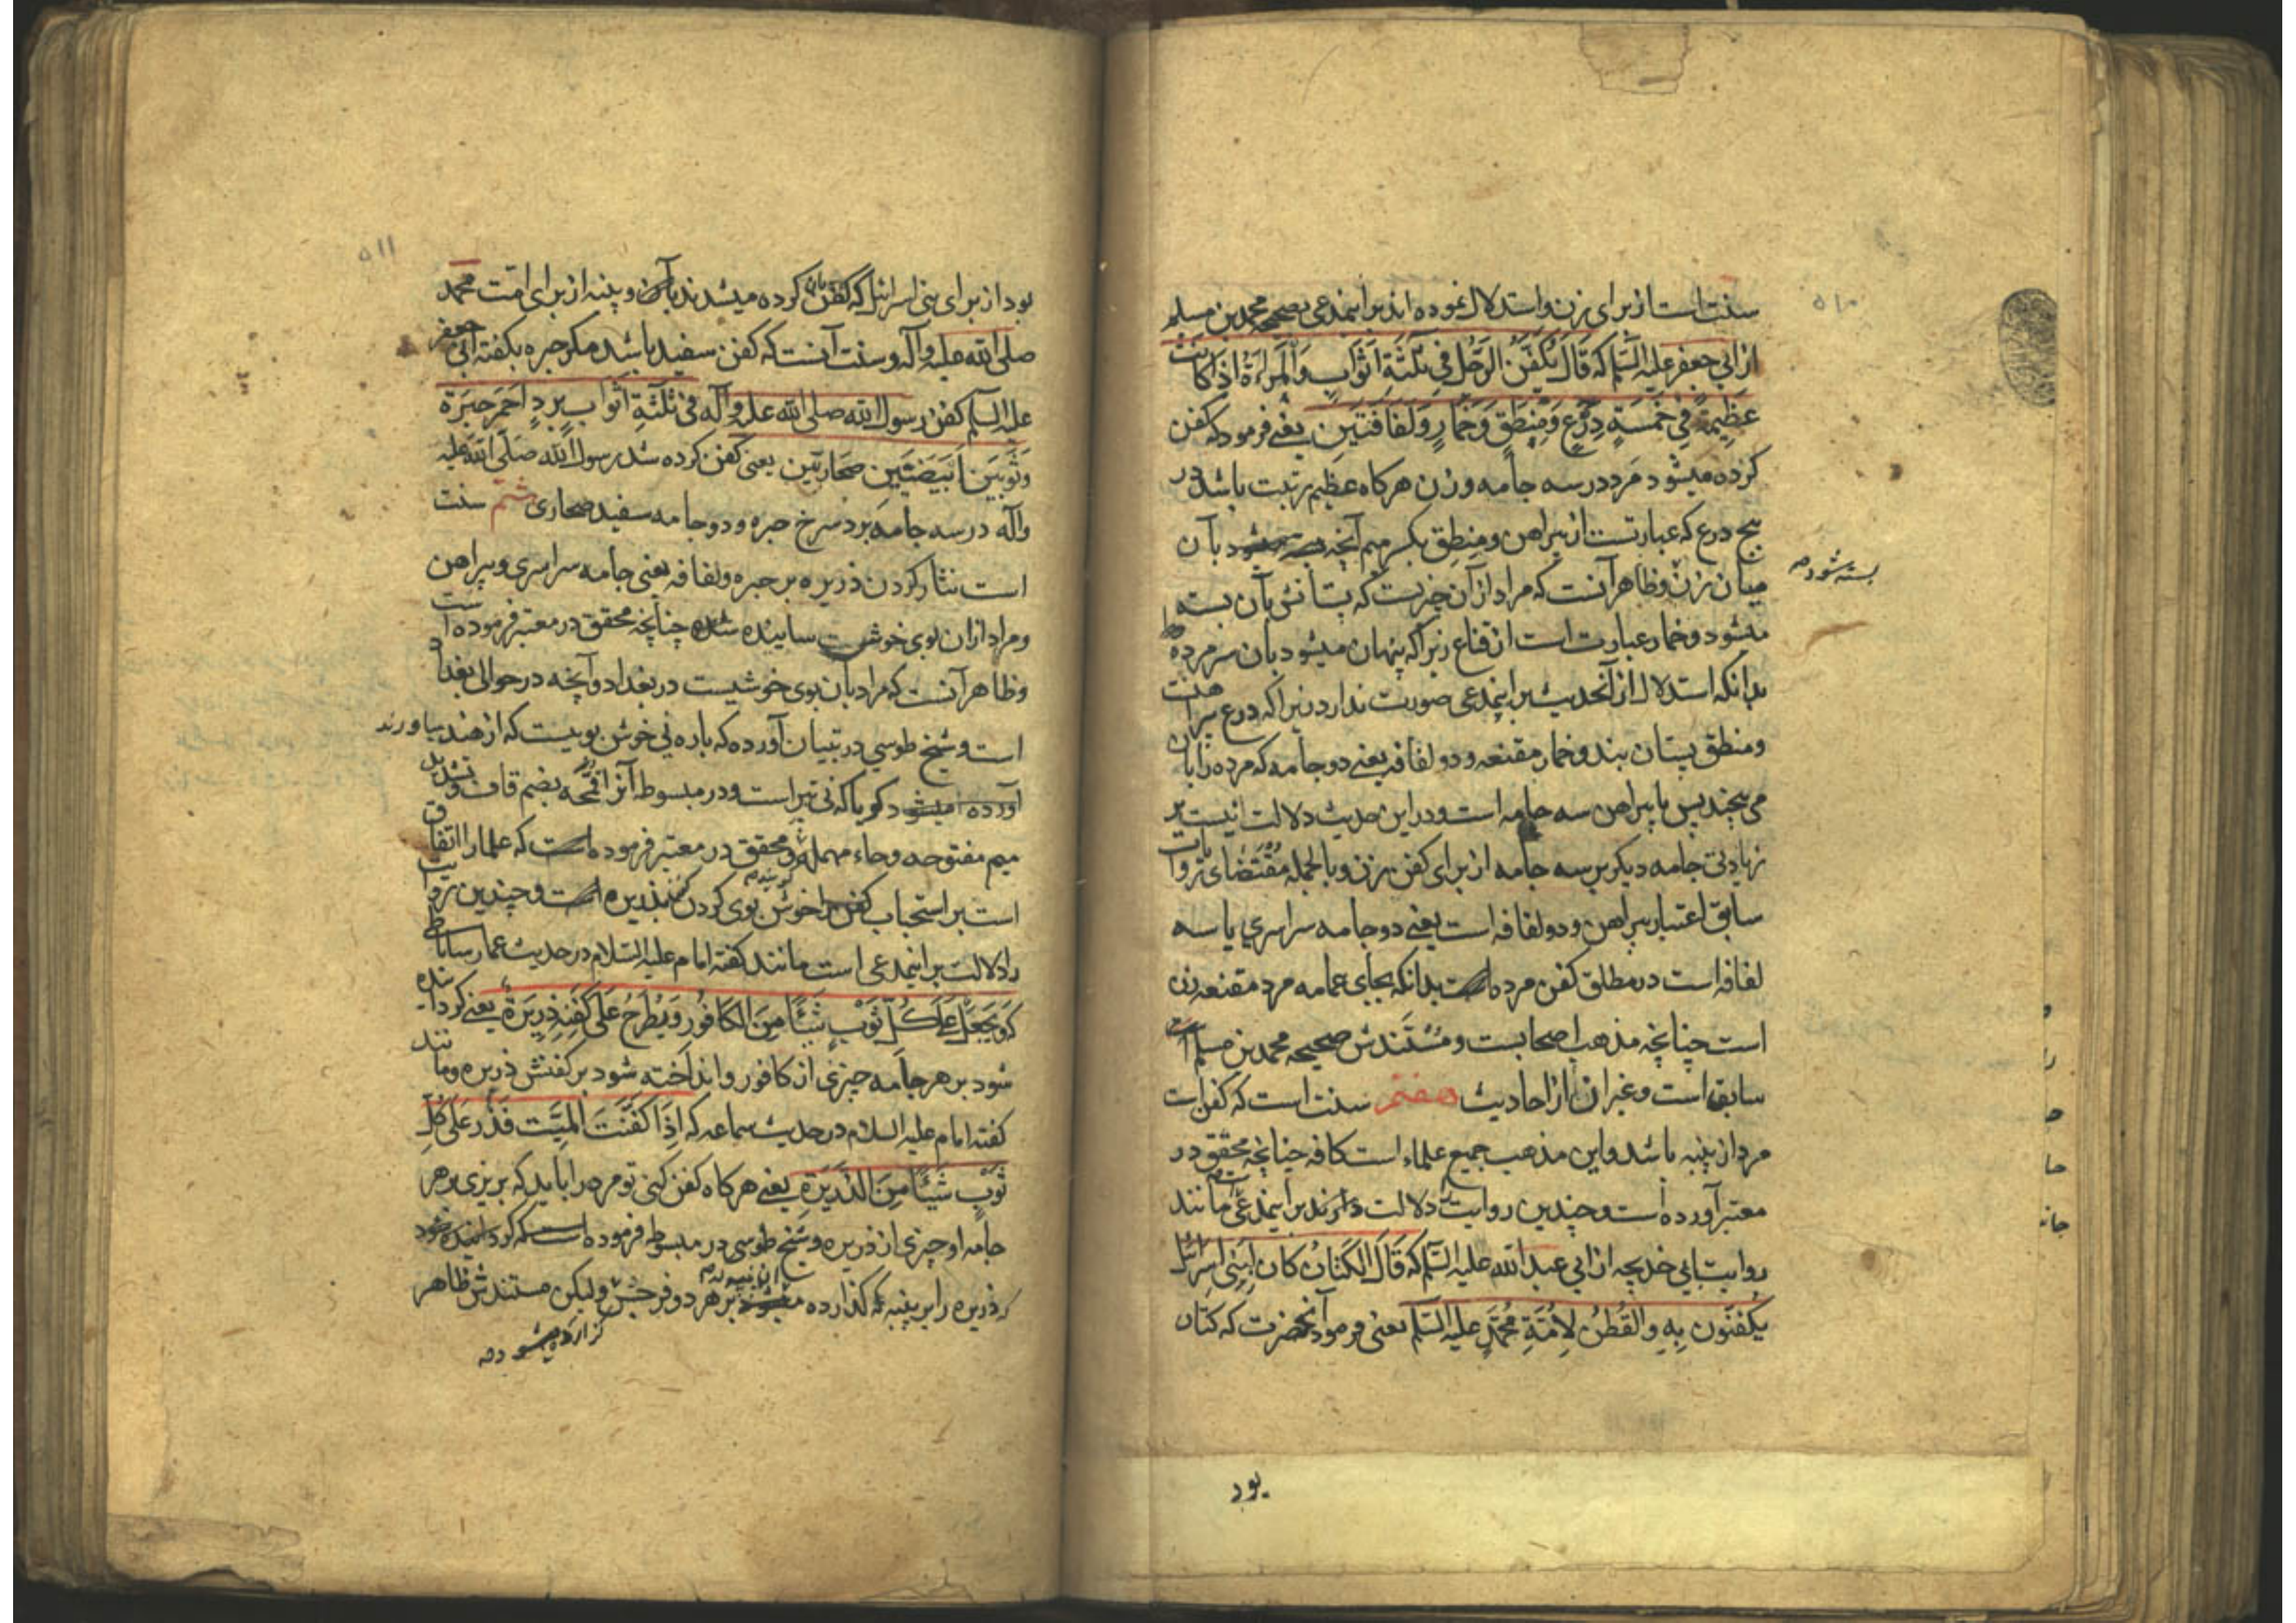 ۵۱۰
سنت است از برای زن واستدلال نموده اند براینمدعی بصحیح محمد بن مسلم
از ابی جعفر علیه السلم که قَالَ یُکَفَّنُ الرَّجُل فِی ثَلٰثَةِ اَثوَابٍ وَالْمَراَةُ اِذَا کَانَت
عَظِیمَة فِی خَمْسَةٍ دِرْعٍ وَمِنْطَقٍ وَخِمَارٍ وَلِفَافَتَیْنِ یعنی فرمود که کفن
کرده میشود مرد در سه جامه و زن هرکاه عظیم رتبت باشد در
پنج درع که عبارتست از پیراهن و مِنطِق بکسر میم آنچه بآن
بسته شود
میان زن و ظاهر آنست که مراد از آن چیزیست که پستانش بآن بسته
میشود و خمار عبارت است از قناع زیرا که پنهان میشود بآن سر مرده
بدانکه استدلال از آنحدیث براینمدعی صورت ندارد زیرا که درع پیراهنست
ومنطق پستان بند و خمار مقنعه و دو لفافه یعنی دو جامه که مرده را بآن
می پیچند پس با پیراهن سه جامه است و در این حدیث دلالت نیست بر
زیادتی جامه دیکر بر سه جامه از برای کفن زن و بالجمله مُقْتَضای روایات
سابق اعتبار پیراهن و دو لفافه است یعنی دو جامه سراسری یا سه
لفافه است در مطلق کفن مرده است بدانکه بجای عمامه مرد مقنعه زن
است چنانچه مذهب اصحابست و مُسْتَنَدش صحیحه محمد بن مسلم است
سابق است و غیر آن از احادیث هفتم سنت است که کفن است
مرد از پنبه باشد و این مذهب جمیع علماء است کافه چنانچه محقق در
معتبر آورده است و چندین روایت دلالت دارند براینمدعی مانند
روایت ابی خدیجه از ابی عبدالله علیه السلم که قَالَ الکَتَانُ کان لِبَنِی اِسرائل
یُکَفَّنُون بِهِ وَالقُطْنُ لِاُمَّةِ مُحَمَّدٍ علیه السلم یعنی فرمود آنحضرت که کتان
بود
۵۱۱
بود از برای بنی اسرائل که کفن کرده میشدند بآن و پنبه از برای امت محمد
صلی الله علیه وآله و سنت آنست که کفن سفید باشد مکر حبره بکفته ابی جعفر
علیه السلم کفن رسول الله صلی الله علیه وآله فی ثَلٰثَةِ اَثوَابٍ بردٍ اَحمَر حِبَرَة
وثَوبَین اَبیَضَیْنِ صحَاریّین یعنی کفن کرده شد رسول الله صَلّی الله علیه
وآله در سه جامه برد سرخ حبره و دو جامه سفید صحاری هشتم سنت
است نثار کردن ذریره بر حبره ولفافه یعنی جامه سراسری و پیراهن
ومراد ازان بوی خوشیست ساییده شده چنانچه محقق در معتبر فرموده است
وظاهر آنست که مراد بآن بوی خوشیست در بغداد و آنچه در حوالی بغداد
است و شیخ طوسی در تبیان آورده که پاره نی خوش بوییست که از هند بیاورند
کویا که نی تیر است و در مبسوط آنرا قُمَّحَه بضم قاف و تشدید
میم مفتوحه وحاء مهمله و محقق در معتبر فرموده است که علما را اتفاق
است بر استحباب خوش بوی کردن کفن بذریره است و چندین روایت
را دلالت بر اینمدعی است مانند کفته امام علیه السلام در حدیث عمار ساباطی
که وَیجعَل عَلی کُلِّ ثَوْبٍ شَیئًا مِنَ الکَافُورِ وَیُطْرَحُ عَلَی کَفَنِهِ ذرِیرَة یعنی کردانیده
شود بر هر جامه چیزی از کافور و انداخته شود بر کفنش ذریره و مانند
کفته امام علیه السلام در حدیث سماعه که اِذَا کَفَّنْتَ المَیَّت فَذُر عَلَی کُلِّ
ثَوْبٍ شَیْئًا مِنَ الذَّرِیرَةِ یعنی هرکاه کفن کنی تو مرد را باید که بریزی بر هر
جامه او چیزی از ذریره و شیخ طوسی در مبسوط فرموده است که کردانیده شود
که ذریره را بر پنبه که کذارده بر هر دو فرجش ولیکن مستندش ظاهر
کزارده میشود